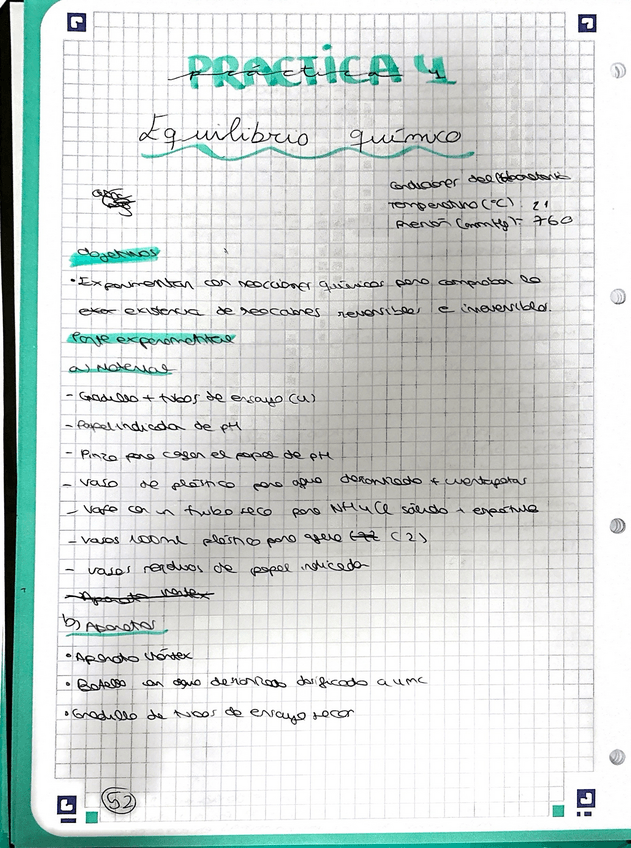 PRACTICA 4
práctica 4
Equilibrio químico
Condiciones del laboratorio
Temperatura (°C): 21
Presión (mmHg): 760
Objetivos
• Experimentar con reacciones químicas para comprobar la
existencia de reacciones reversibles e irreversibles.
Parte experimental
a) Material
- Gradilla + tubos de ensayo (4)
- Papel indicador de pH
- Pinza para coger el papel de pH
- Vaso de plástico para agua desionizada + cuentagotas
- Vaso con un tubo seco para NH4Cl sólido + espátula
- Vasos 100ml plástico para agua (2)
- Vasos residuos de papel indicador
- Aparato vortex
b) Aparatos
• Aparato vórtex
• Botella con agua desionizada dosificado a 4mL
• Gradilla de tubos de ensayo secos
52